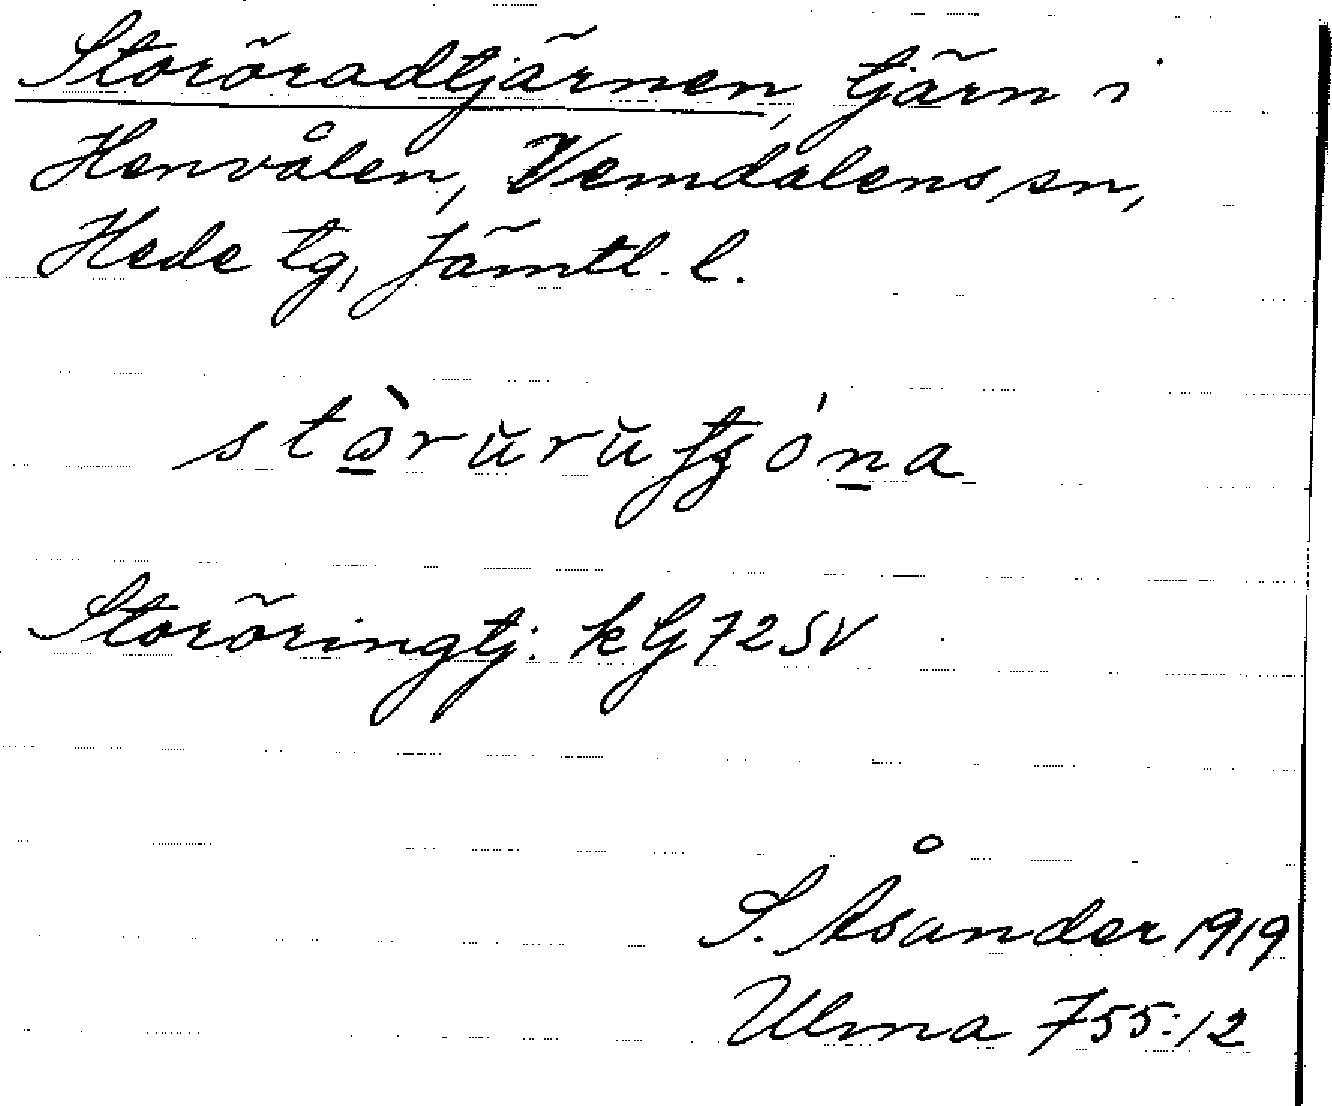 Storöradtjärnen, tjärn i
Henvålen, Vemdalens sn,
Hede tg, Jämtl. l.
Storöringtj. kG72SV
S. Åsander 1919
Ulma 755:12